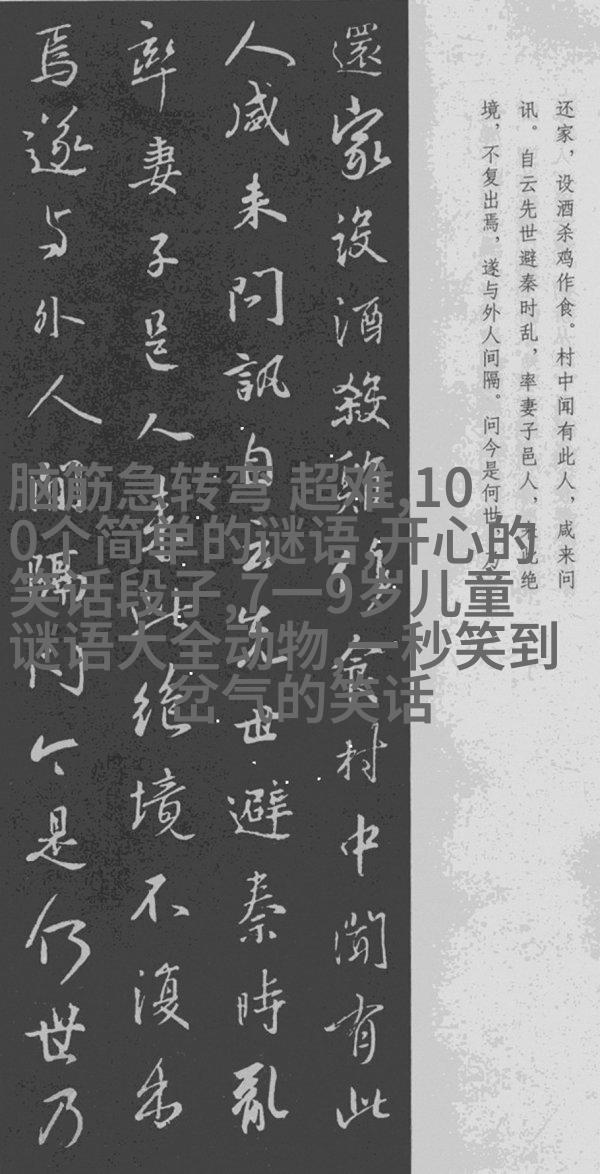 还家，设酒杀鸡作食。村中闻有此人，咸来问
讯。自云先世避秦时乱，率妻子邑人，来此绝
境，不复出焉，遂与外人间隔。问今是何世，乃
還家設酒殺雞作食村中聞有此
人咸来問訊自云先世避秦時亂
率妻子邑人来此絕境不復出
焉遂与外人間隔问今是何世乃
脑筋急转弯 超难,10
0个简单的谜语,开心的
笑话段子,7一9岁儿童
谜语大全动物,一秒笑到
岔气的笑话